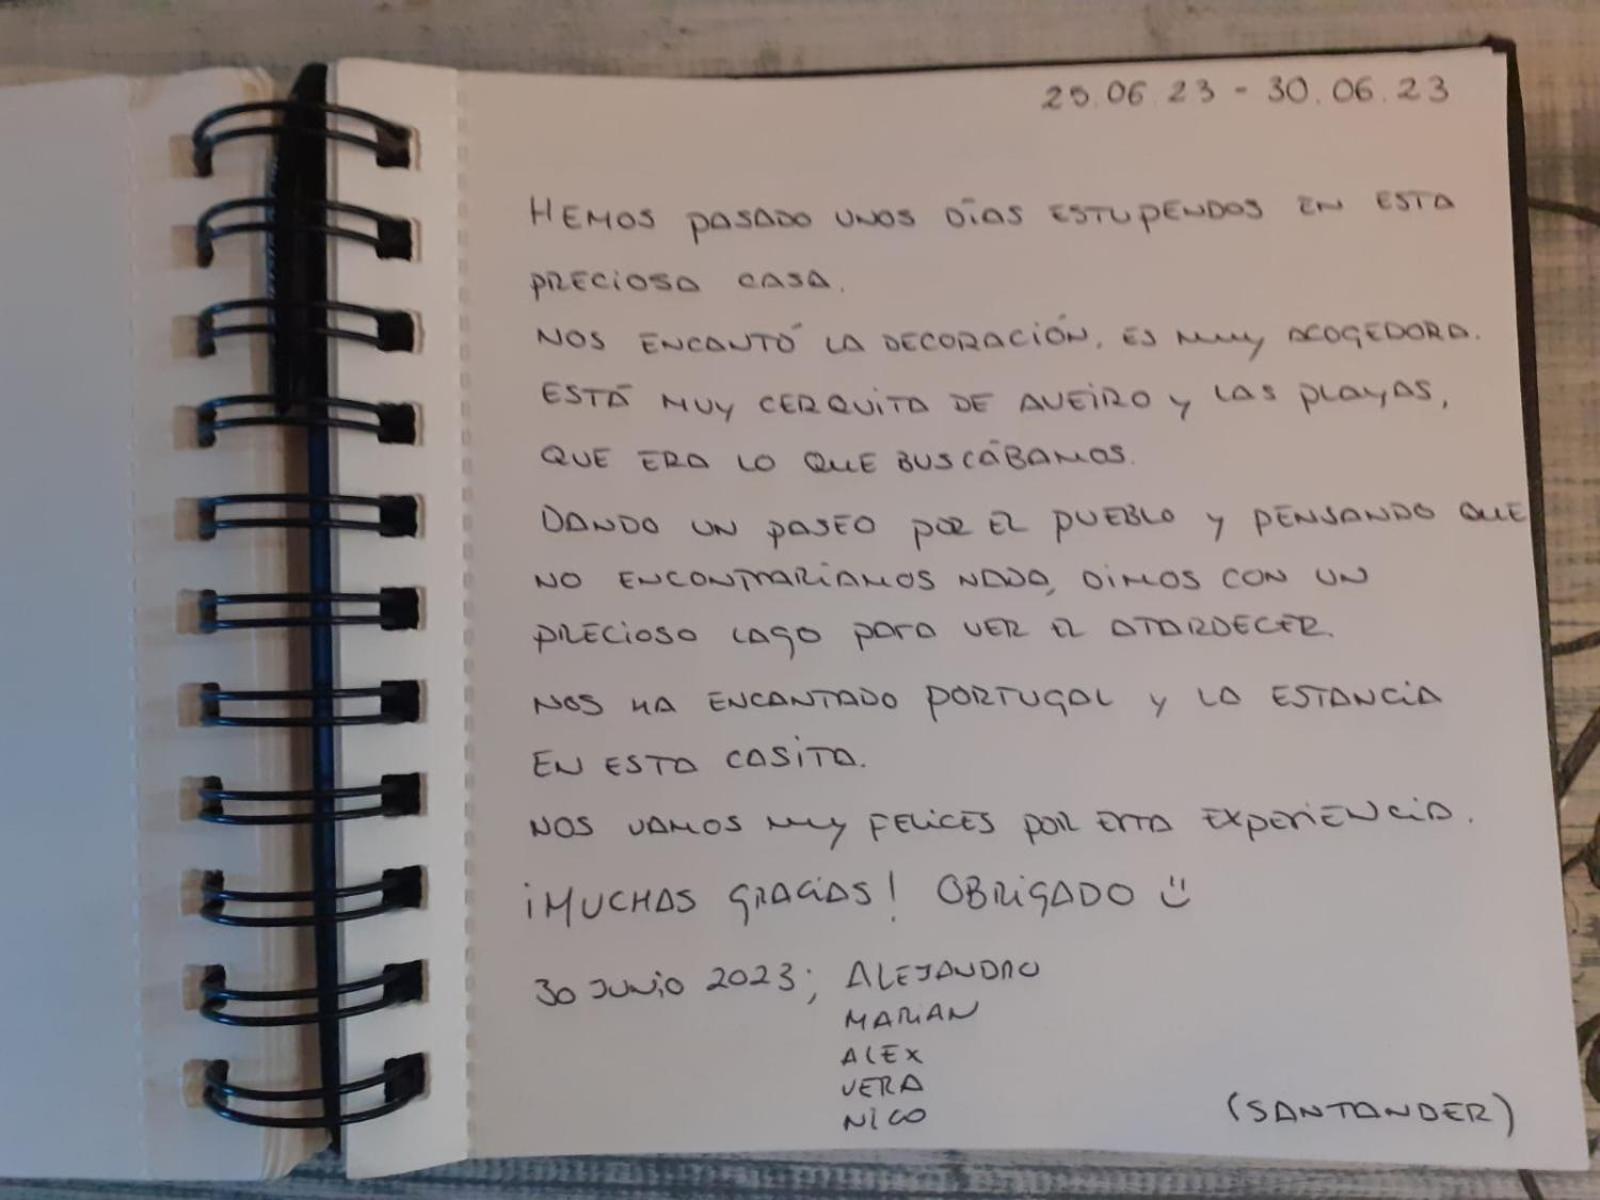 25.06.23 - 30.06.23
HEMOS PASADO UNOS DÍAS ESTUPENDOS EN ESTA
PRECIOSA CASA.
NOS ENCANTÓ LA DECORACIÓN, ES MUY ACOGEDORA.
ESTÁ MUY CERQUITA DE AVEIRO Y LAS PLAYAS,
QUE ERA LO QUE BUSCÁBAMOS.
DANDO UN PASEO POR EL PUEBLO Y PENSANDO QUE
NO ENCONTRARÍAMOS NADA, DIMOS CON UN
PRECIOSO LAGO PARA VER EL ATARDECER.
NOS HA ENCANTADO PORTUGAL Y LA ESTANCIA
EN ESTA CASITA.
NOS VAMOS MUY FELICES POR ESTA EXPERIENCIA.
¡MUCHAS GRACIAS! OBRIGADO :)
30 JUNIO 2023; ALEJANDRO
MARIAN
ALEX
VERA
NICO
(SANTANDER)